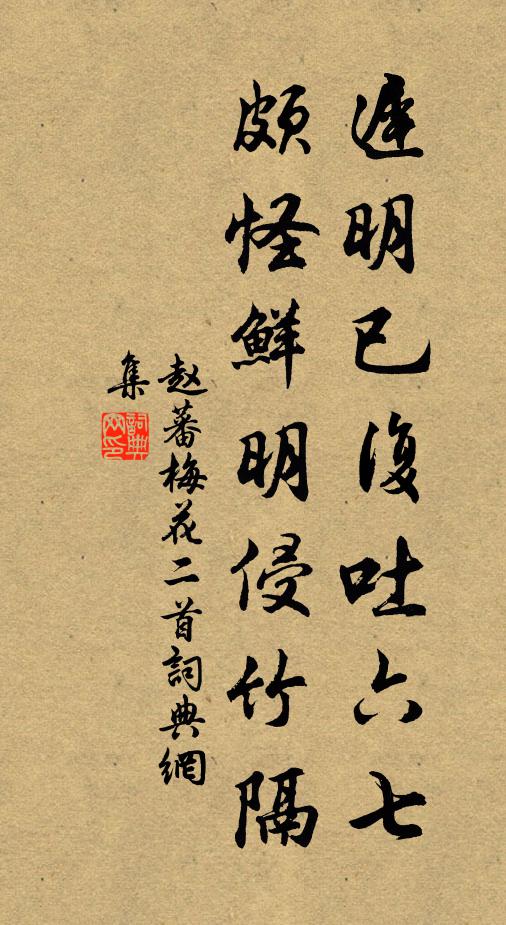 遲明已復吐六七
頗怪鮮明侵竹隔
赵蕃梅花二首詞典網
集
詞典
网印